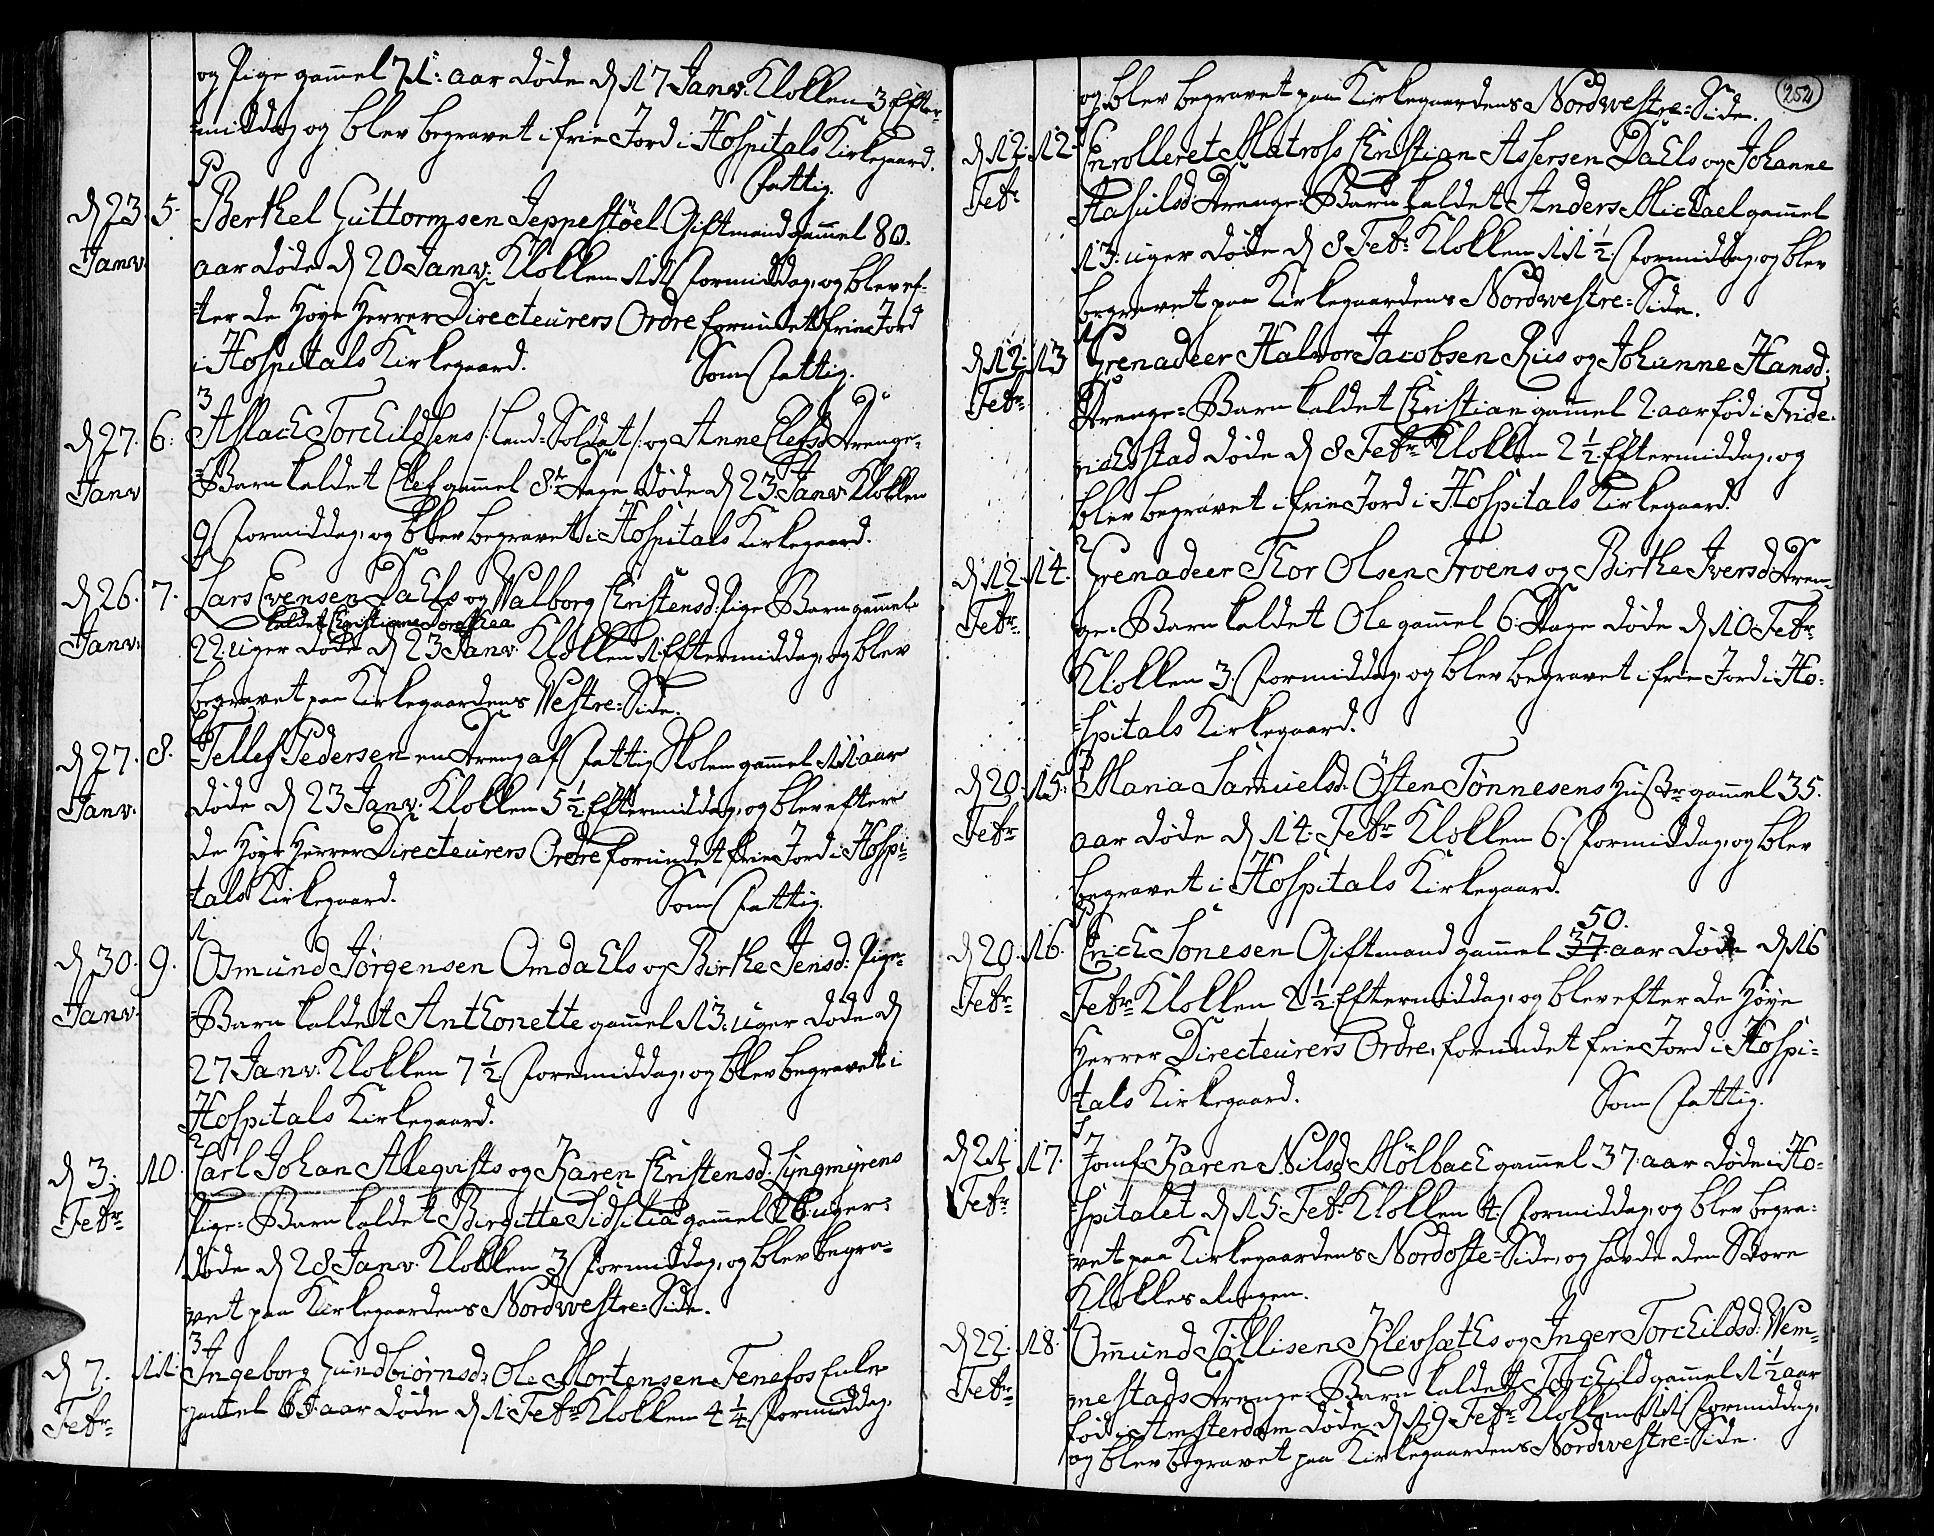 og Pige gammel 71: aar døde d 17 Janv: Klokken 3 Efter-
=middag og blev begravet i frie Jord i Hospitals Kirkegaard.
Fattig.
d 23 5. Berthel Guttormsen Jeppestöel Giftmand gammel 80.
Janv. aar døde d 20 Janv: Klokken 11 Formiddag, og blev ef-
=ter de Høye Herrer Directeurers Ordre forundt frie Jord
i Hospitals Kirkegaard. Som Fattig.
3
d 27. 6: Aslach Torchildsens /: Land-Soldat /: og Anne Elefsd Drenge-
Janv =Barn kaldet Elef gammel 8te Dage døde d 23 Janv: Klokken
9 Formiddag, og blev begravet i Hospitals Kirkegaard.
d 26. 7. Lars Evensen Dahls og Walborg Christensd: Pige Barn gammel
kaldet Christiane Dorethea
Janv. 22 uger døde d 23 Janv: Klokken 1 Eftermiddag, og blev
begravet paa Kirkegaardens Westre=Side.
d 27. 8. Tellef Pedersen en Dreng af Fattig Skolen gammel 11 aar
Janv. døde d 23 Janv: Klokken 5½ Eftermiddag, og blev efter
de Høye Herrer Directeurers Ordre forundet frie Jord i Hospi=
=tals Kirkegaard. Som Fattig.
1
d 30. 9. Osmund Jørgensen Omdahls og Birthe Jensd: Pige-
Janv. =Barn kaldet Anthonette gammel 13. uger døde d
27 Janv: Klokken 7½ Formiddag, og blev begravet i
Hospitals Kirkegaard.
2
d 3. 10. Carl Johan Alleqvists og Karen Christensd: Lyngmyrens
Febr. Pige=Barn kaldet Birgitte Sidsilia gammel 26 uger
døde d 28 Janv: Klokken 3 Formiddag, og blev begra=
vet paa Kirkegaardens Nordwestre=Side.
3
d 7. 11. Ingeborg Gundbiørnsd: Ole Mortensen Fenefos Enke
Febr. gammel aar døde d 1 Febr Klokken 4¼ Formiddag,
252
og blev begravet paa Kirkegaardens Nordwestre=Side.
d 12. 12. Enrolleret Matross Christian Assersen Dahls og Johanne
Febr Drenge=Barn kaldet Anders Michael gammel
13. uger døde d 8 Febr Klokken 11½. Formiddag, og blev
begravet paa Kirkegaardens Nordwestre=Side.
1
d 12. 13 Grenadeer Halvor Jacobsen Riis og Johanne Hansd:
Febr. Drenge=Barn kaldet Christian gammel 2 aar fød i Fride-
richstad døde d 8 Febr Klokken 2½. Eftermiddag, og
blev begravet i frie Jord i Hospitals Kirkegaard.
2
d 12 14. Grenadeer Thor Olsen Troens og Birthe Iversd Dren-
Febr. ge=Barn kaldet Ole gammel 6. Dage døde d 10. Febr
Klokken 3. Formiddag, og blev begravet i frie Jord i Ho-
=spitals Kirkegaard.
d 20. 15. Maria Samuelsd. Östen Tønnesens Hustr gammel 35.
Febr aar døde d 14. Febr Klokken 6. Formiddag, og blev
begravet i Hospitals Kirkegaard.
50.
d 20. 16. Erich Jonesen Giftmand gammel 37. aar døde d 16
Febr Febr Klokken 2½. Eftermiddag, og blev efter de Høye
Herrer Directeurers Ordre, forundet frie Jord i Hospi=
=tals Kirkegaard. Som Fattig.
d 21 17. Jomfr Karen Nilsd Mölbach gammel 37. aar døde i Ho-
Febr =spitalet d 15. Febr Klokken 4. Formiddag, og blev begra=
=vet paa Kirkegaardens Nordoste=Side, og havde den Store
Klokkes Ringen.
1
d 22. 18. Ommund Töllisen Klevsæths og Inger Torchildsd: Wem-
Febr mestads Drenge=Barn kaldet Torchild gammel 1½ aar
fød i Amsterdam døde d 19 Febr Klokken 11 Formiddag,
og blev begravet paa Kirkegaardens Nordwestre=Side.